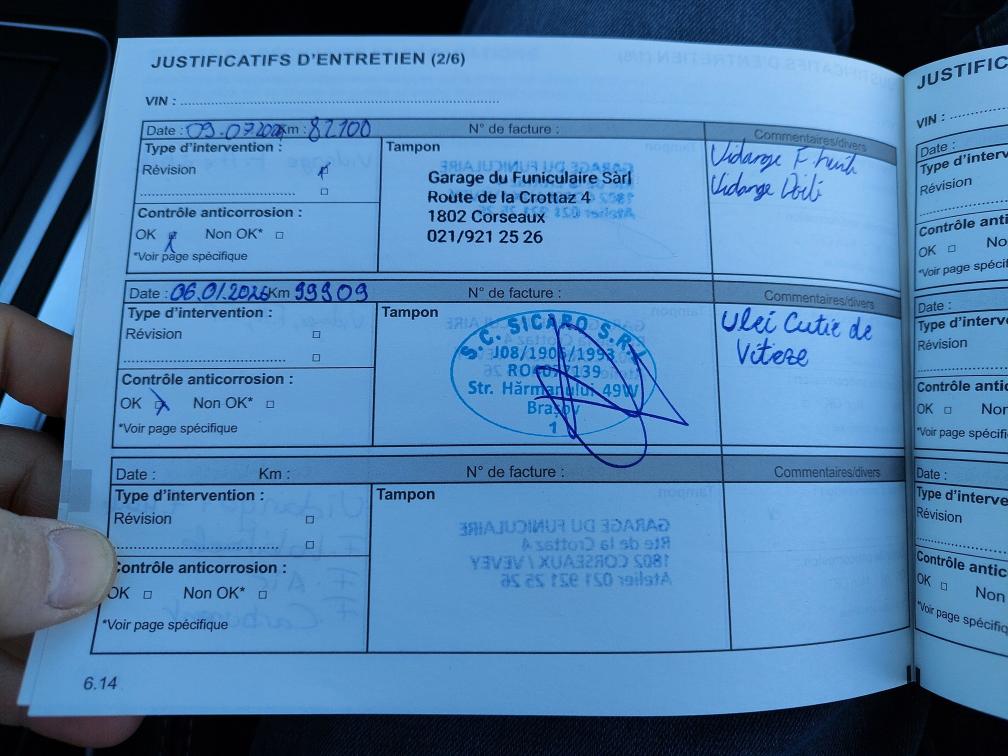 JUSTIFICATIFS D'ENTRETIEN (2/6)
VIN :
Date : 09.07.2025 Km : 82100 N° de facture : Commentaires/divers
Type d'intervention :
Révision
Tampon
Garage du Funiculaire Sàrl
Route de la Crottaz 4
1802 Corseaux
021/921 25 26
Vidange F huile
Vidange
Contrôle anticorrosion :
OK Non OK*
*Voir page spécifique
Date : 06.01.2026 Km 99909 N° de facture : Commentaires/divers
Type d'intervention :
Révision
Tampon
S.C. SICARO S.R.L
J08/1906/1993
Str. Hărmanului 49W
Brașov
1
Ulei Cutie de
Viteze
Contrôle anticorrosion :
OK Non OK*
*Voir page spécifique
Date : Km : N° de facture : Commentaires/divers
Type d'intervention :
Révision
Tampon
Contrôle anticorrosion :
OK Non OK*
*Voir page spécifique
6.14
JUSTIFIC
VIN :
Date :
Type d'interv
Révision
Contrôle anti
OK No
*Voir page spécif
Date :
Type d'interv
Révision
Contrôle antic
OK Non
*Voir page spécif
Date :
Type d'interve
Révision
Contrôle antic
OK Non
*Voir page spécifiq